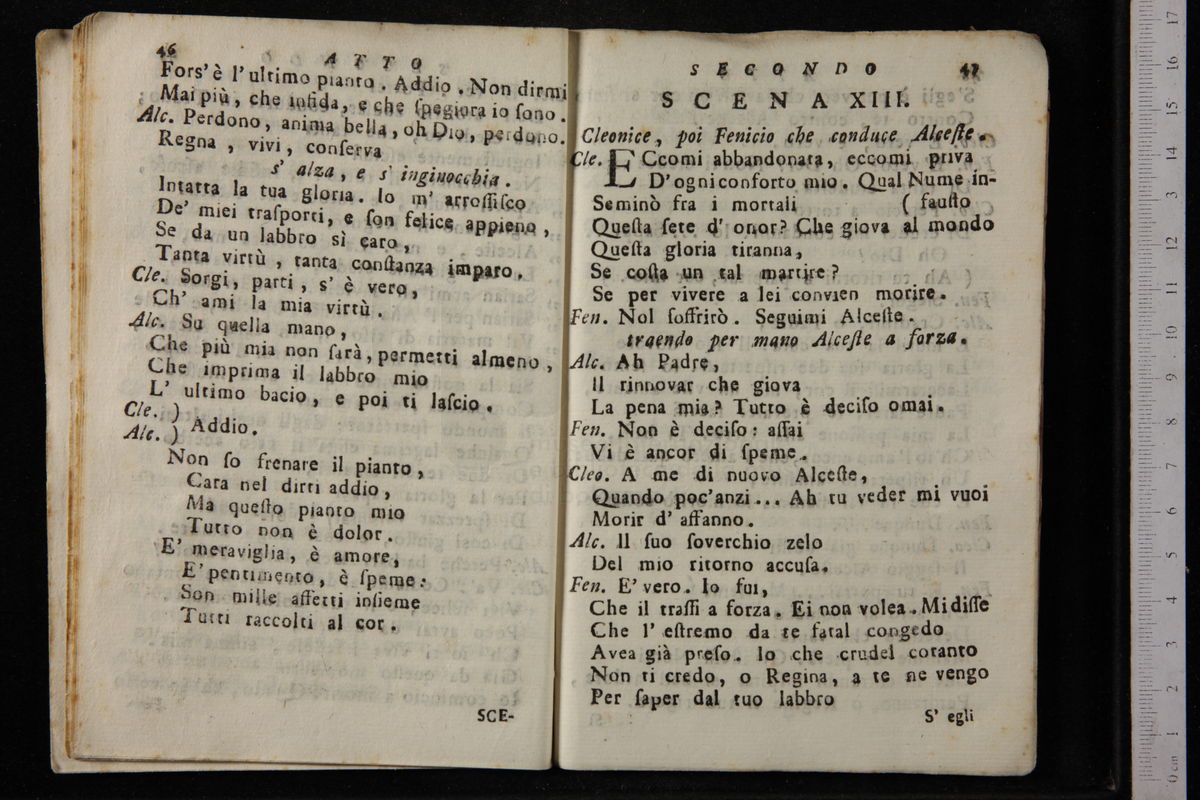 46
ATTO
Fors'è l'ultimo pianto. Addio. Non dirmi
Mai più, che infida, e che ſpegiora io ſono.
Alc. Perdono, anima bella, oh Dio, perdono.
Regna, vivi, conſerva
s' alza, e s' inginocchia.
Intatta la tua gloria. Io m' arroſſiſco
De' miei traſporti, e ſon felice appieno,
Se da un labbro sì caro,
Tanta virtù, tanta conſtanza imparo.
Cle. Sorgi, parti, s' è vero,
Ch' ami la mia virtù.
Alc. Su quella mano,
Che più mia non ſarà, permetti almeno,
Che imprima il labbro mio
L' ultimo bacio, e poi ti laſcio.
Cle. )
Alc. ) Addio.
Non ſo frenare il pianto,
Cara nel dirti addio,
Ma queſto pianto mio
Tutto non è dolor.
E' meraviglia, è amore,
E' pentimento, è ſpeme:
Son mille affetti inſieme
Tutti raccolti al cor.
SCE-
SECONDO
47
SCENA XIII.
Cleonice, poi Fenicio che conduce Alceſte.
Cle. ECcomi abbandonata, eccomi priva
D'ogni conforto mio. Qual Nume in-
Seminò fra i mortali ( fauſto
Queſta ſete d' onor? Che giova al mondo
Queſta gloria tiranna,
Se coſta un tal martire?
Se per vivere a lei convien morire.
Fen. Nol ſoffrirò. Seguimi Alceſte.
traendo per mano Alceſte a forza.
Alc. Ah Padre,
Il rinnovar che giova
La pena mia? Tutto è deciſo omai.
Fen. Non è deciſo: aſſai
Vi è ancor di ſpeme.
Cleo. A me di nuovo Alceſte,
Quando poc'anzi... Ah tu veder mi vuoi
Morir d' affanno.
Alc. Il ſuo ſoverchio zelo
Del mio ritorno accuſa.
Fen. E' vero. Io fui,
Che il traſſi a forza. Ei non volea. Mi diſſe
Che l' eſtremo da te fatal congedo
Avea già preſo. Io che crudel cotanto
Non ti credo, o Regina, a te ne vengo
Per ſaper dal tuo labbro
S' egli
0 cm 1 2 3 4 5 6 7 8 9 10 11 12 13 14 15 16 17